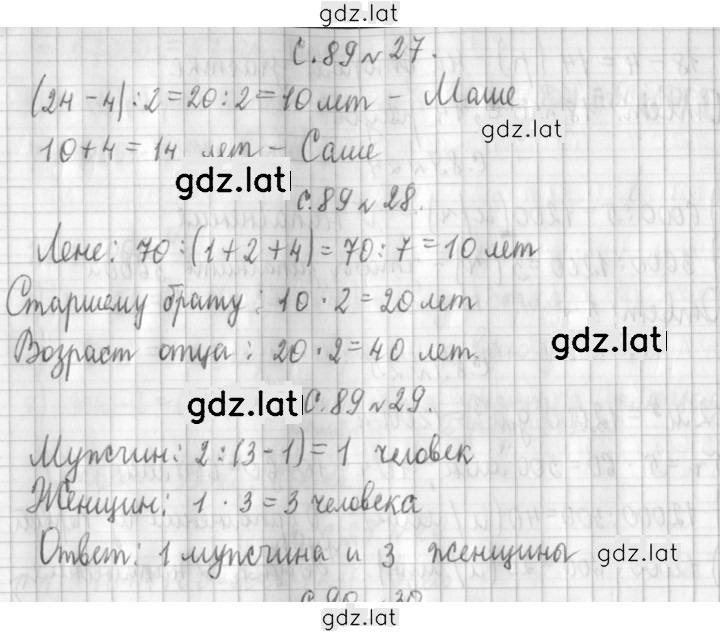 gdz.lat
с.89 №27.
(24-4):2=20:2=10 лет - Маше
gdz.lat
10+4=14 лет - Саше
gdz.lat
с.89 №28.
Лене: 70:(1+2+4)=70:7=10 лет
Старшему брату: 10·2=20 лет
gdz.lat
Возраст отца: 20·2=40 лет.
gdz.lat
с.89 №29.
Мужчин: 2:(3-1)=1 человек
Женщин: 1·3=3 человека
Ответ: 1 мужчина и 3 женщины
gdz.lat
с.90 №30
gdz.lat